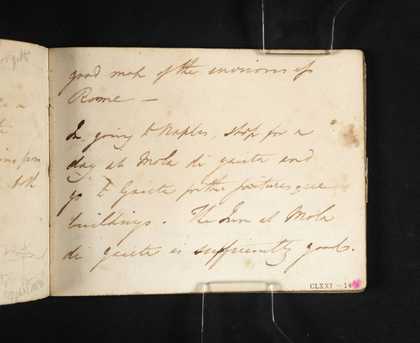 good map of the environs of
Rome —
In going to Naples, stop for a
day at Mola di gaieta and
go to Gaieta for the picturesque
buildings. The Inn at Mola
di gaieta is sufficiently good.
CLXXI - 14